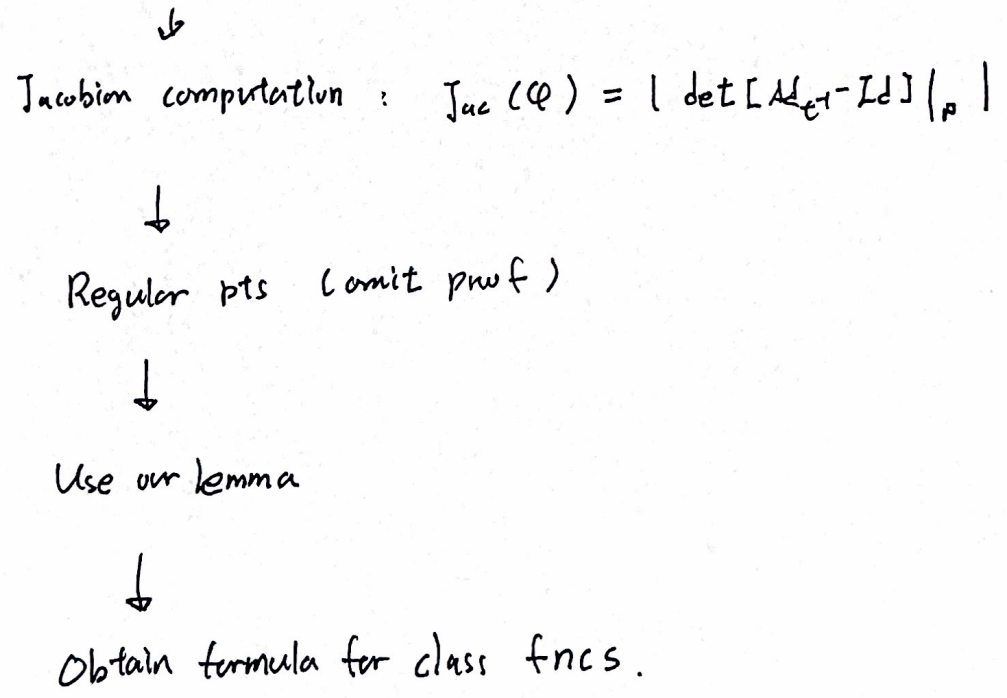 ↓
Jacobian computation : Jac (φ) = | det [Ad_{t^{-1}} - Id] |_p |
↓
Regular pts (omit proof)
↓
Use our lemma
↓
Obtain formula for class fncs.